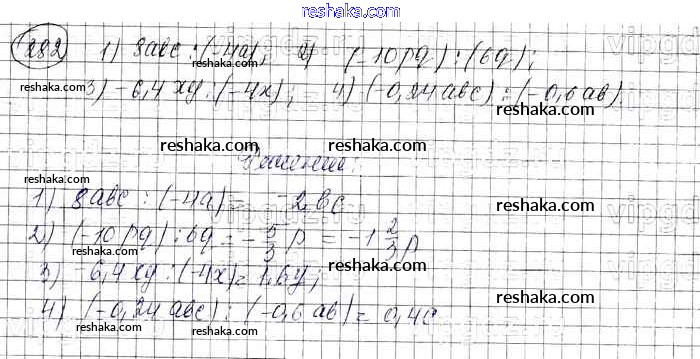 reshaka.com
282 1) 8abc : (-4a); 2) (-10pq) : (6q);
3) -6,4xy : (-4x); 4) (-0,24abc) : (-0,6ab).
reshaka.com reshaka.com
Решение:
reshaka.com reshaka.com
1) 8abc : (-4a) = -2bc
2) (-10pq) : 6q = -5/3 p = -1 2/3 p
reshaka.com reshaka.com
3) -6,4xy : (-4x) = 1,6y;
4) (-0,24abc) : (-0,6ab) = 0,4c
reshaka.com reshaka.com
reshaka.com